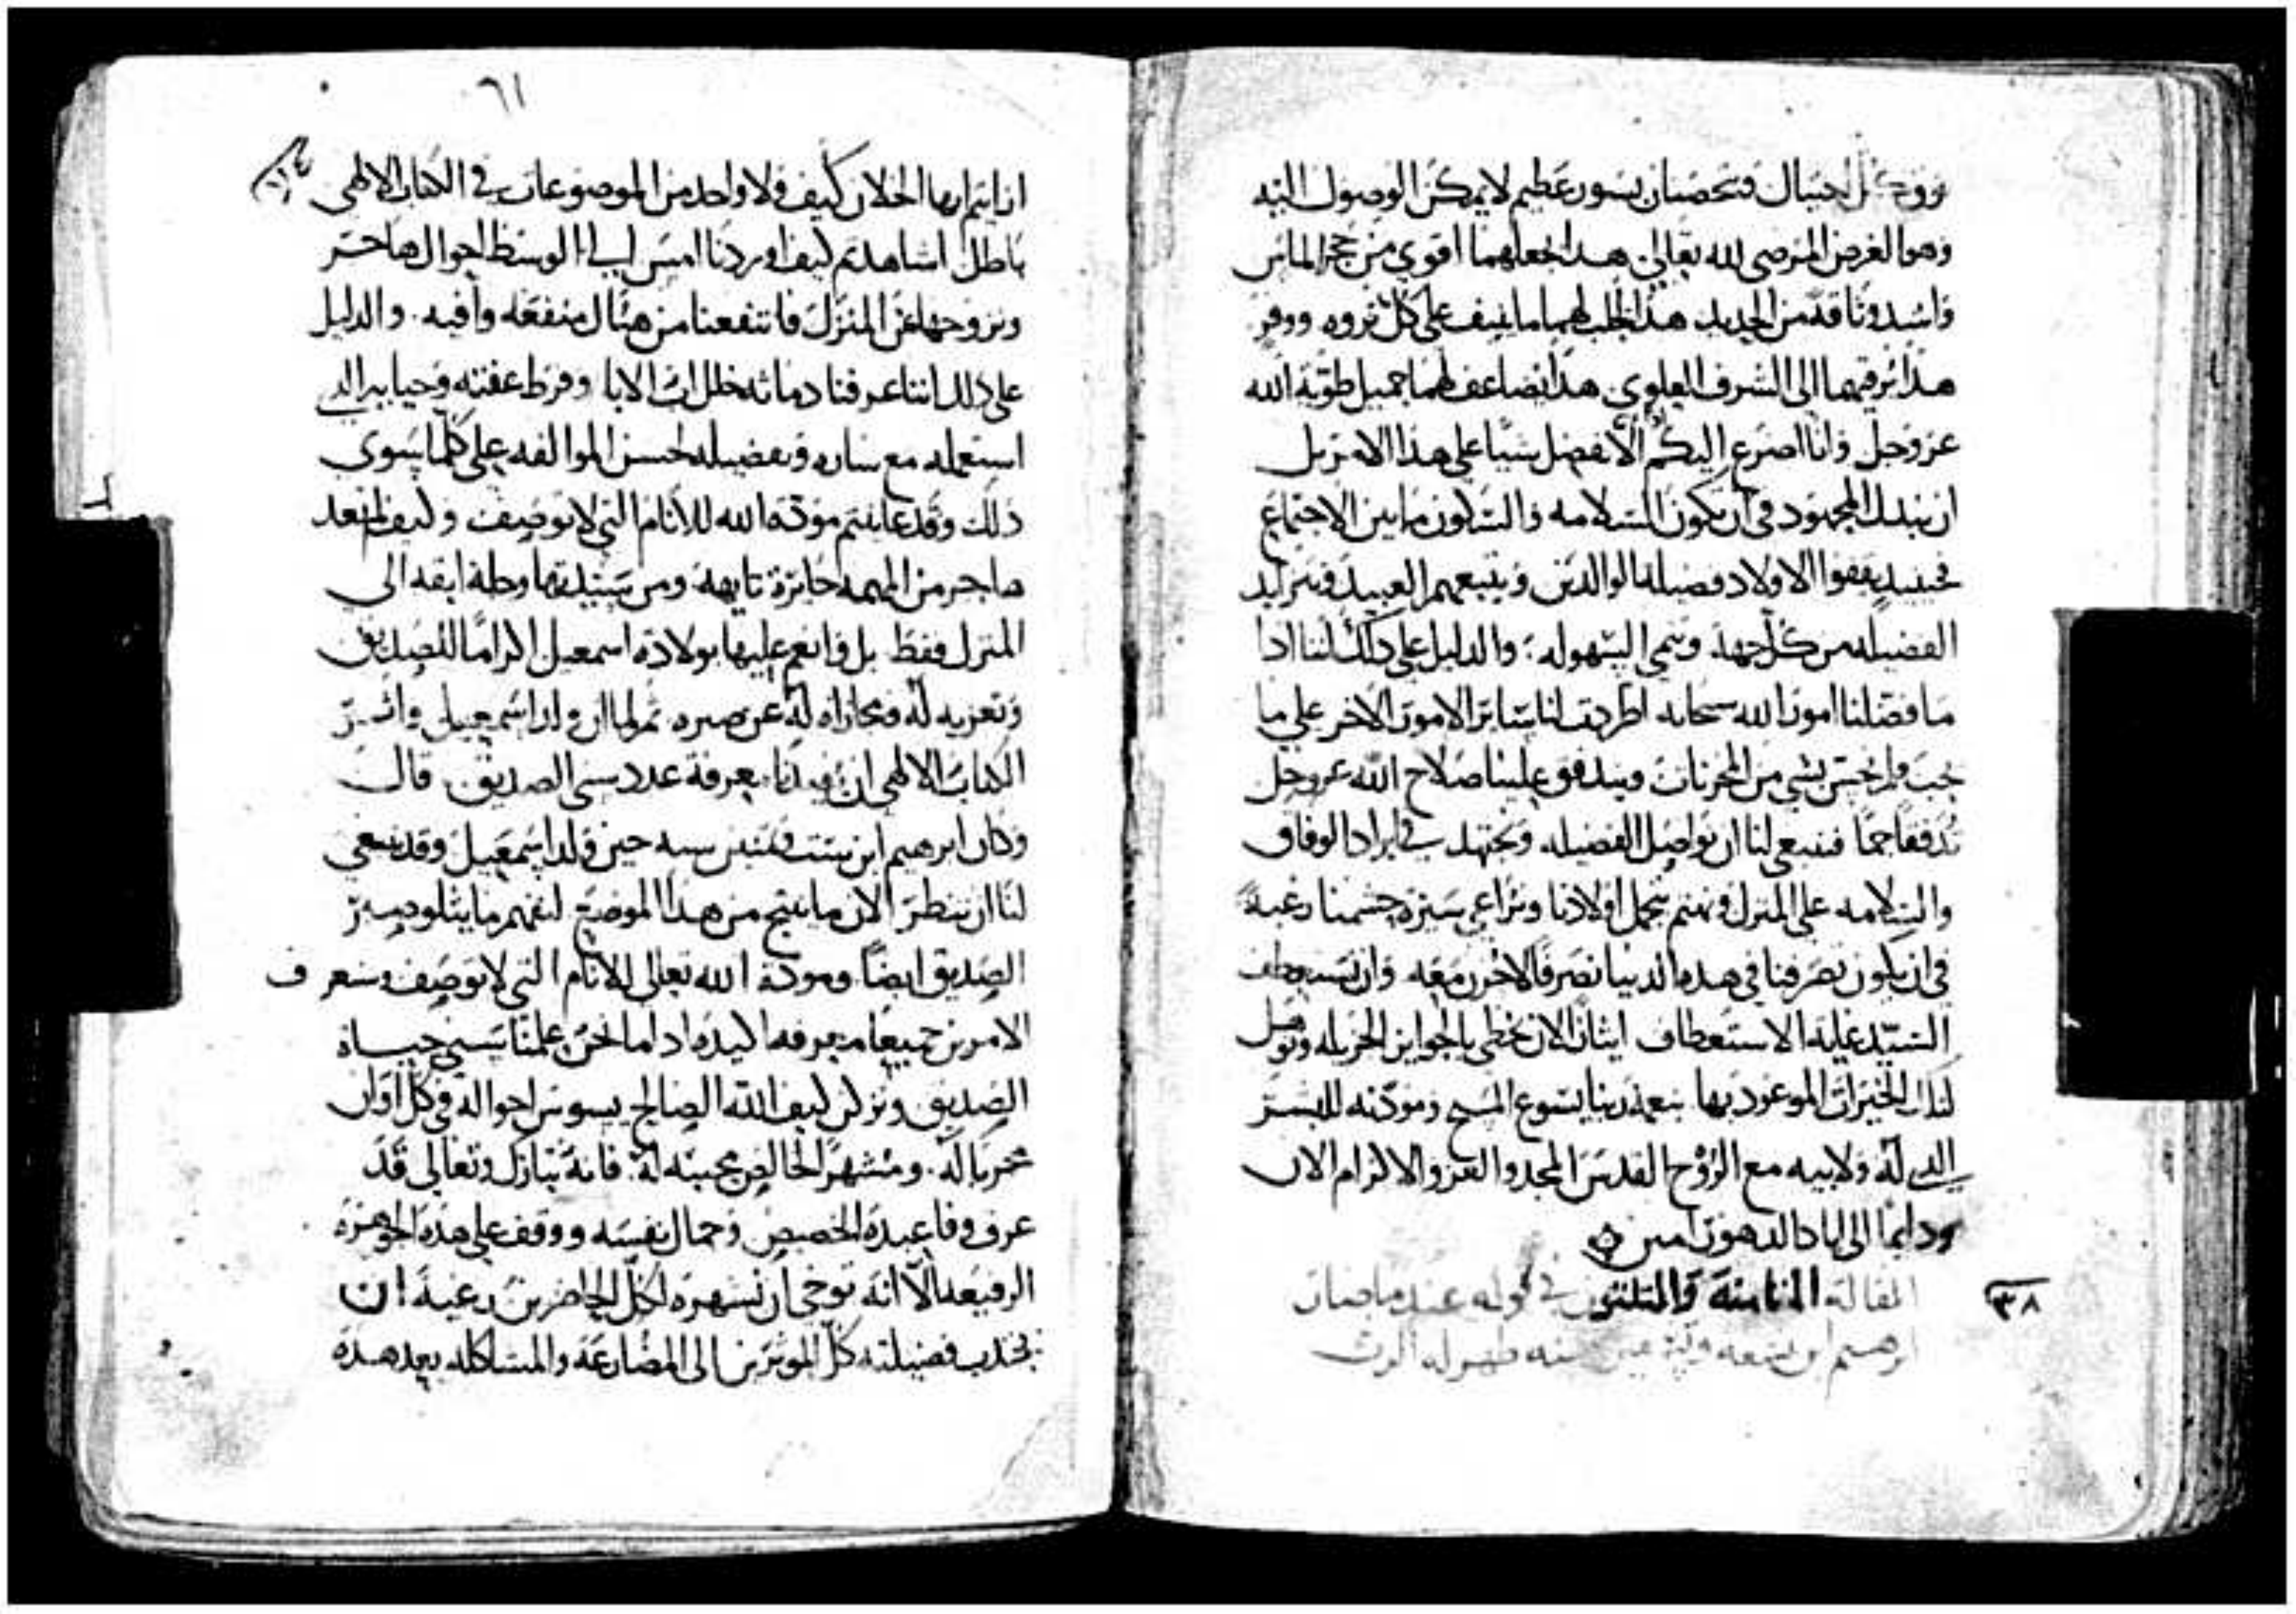 كل احتيال فتحصنان بسور عظيم لا يمكن الوصول اليه
وهو الغرض المرضي لله تعالى هذا يجعلهما اقوى من حجر الماس
واشد وثاقة من الحديد هذا يجلب لهما ما ينيف على كل ثروه ووفر
هذا يرقيهما الى الشرف العلوي هذا يضاعف لهما جميل طوية الله
عز وجل وانا اضرع اليكم الا نفضل شيا على هذا الامر بل
ان نبذل المجهود في ان تكون السلامه والسكون ما بين الاجتماع
فحينيذ يقفوا الاولاد فضيلة الوالدين ويتبعهم العبيد وتتزايد
الفضيله من كل جهة وتنمي السهوله والدليل على ذلك اننا اذا
ما فضلنا امور الله سبحانه اطردت لنا سائر الامور الاخر على ما
يجب ولم نحس بشي من المحزنات ويتدفق علينا صلاح الله عز وجل
تدفقا جما فينبغي لنا ان نواصل الفضيله ونجتهد في ايراد الوفاق
والسلامه على المنزل ونهتم بتجمل اولادنا ونراعي سيرة حشمنا رغبة
في ان يكون تصرفنا في هذه الدنيا تصرفا لاحزن معه وان نستعطف
السيد غاية الاستعطاف ايثانا لان نحظى بالجوايز الجزيله ونوهل
لتلك الخيرات الموعود بها بنعمة ربنا يسوع المسيح ومودته للبشر
الذي له ولابيه مع الروح القدس المجد والعز والاكرام الان
ودايما الى اباد الدهور امين
المقالة الثامنة والثلثون في قوله عند ما صار
ابرهيم ابن تسعه وتسعين سنه ظهر له الرب
٣٨
٦١
ارايتم ايها الخلان كيف ولا واحد من الموضوعات في الكتاب الالهي
باطل اشاهدتم كيف اوردنا امس الى الوسط احوال هاجر
ونزوحها عن المنزل فانتفعنا من هنال منفعه وافيه والدليل
على ذلك اننا عرفنا دماثة خلل اب الابا وفرط عفته وحيايه الذي
استعمله مع ساره وتفضيله لحسن الموالفه على كلما سوى
ذلك وقد عاينتم مودة الله للانام التي لا توصف وكيف لم يعد
هاجر من المهمه حايرة تايهة ومن سيدتها وجلة ابقه الى
المنزل فقط بل وانعم عليها بولادة اسمعيل اكراما للصديق
وتعزيه له ومجازاه له عن صبره ثم لما ان ولد اسمعيل واثر
الكتاب الالهي ان يفيدنا معرفة عدد سني الصديق قال
وكان ابرهيم ابن ست وثمنين سنه حين ولد اسمعيل وقد ينبغي
لنا ان ننظر الان ما ينتج من هذا الموضع لنفهم ما يتلو وصبر
الصديق ايضا ومودة الله تعالى للانام التي لا توصف وسنعرف
الامرين جميعا معرفه اكيده اذا ما نحن علمنا سني حياة
الصديق ونرى كيف الله الصالح يسوس احواله في كل اوان
مجربا له ومشهرا لخالص محبته له فانه تبارك وتعالى قد
عرف وفا عبده الخصيص وجمال نفسه ووقف على هذه الجوهره
الرفيعه الا انه توخى ان تشهره لكل الحاضرين رغبة ان
يجذب فضيلته كل الموثرين الى المضارعة والمشاكله بعد هذه